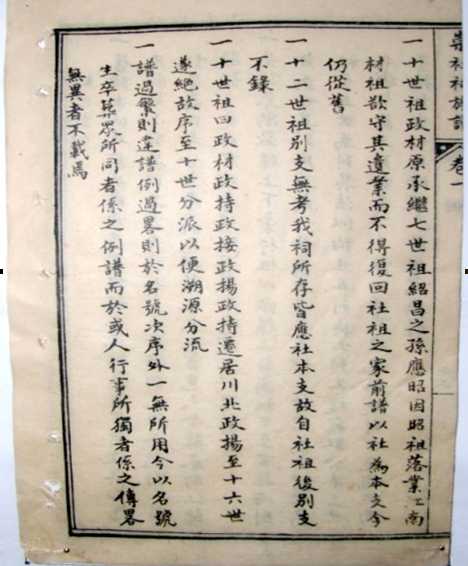 卷一
一十世祖政材原承繼七世祖紹昌之孫應昭因昭祖落業江南
材祖欲守其遺業而不得復回社祖之家前譜以社為本支今
仍從舊
一十二世祖別支無考我祠所存皆應社本支故自社祖後別支
不錄
一十世祖曰政材政持政接政揚政持遷居川北政揚至十六世
遂絕故序至十世分派以便溯源分流
一譜過繁則違譜例過畧則於名號次序外一無所用今以名號
生卒葬眾所同者係之例譜而於或人行事所獨者係之傳畧
無異者不載焉